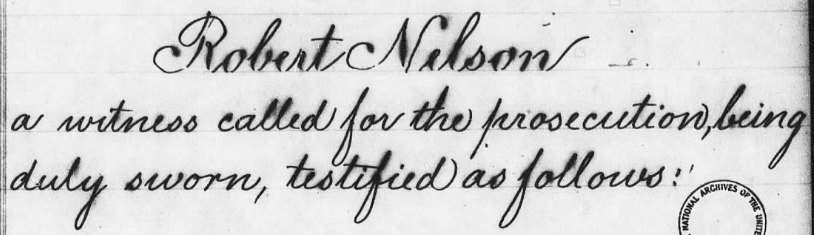 Robert Nelson
a witness called for the prosecution, being
duly sworn, testified as follows:
NATIONAL ARCHIVES OF THE UNITE